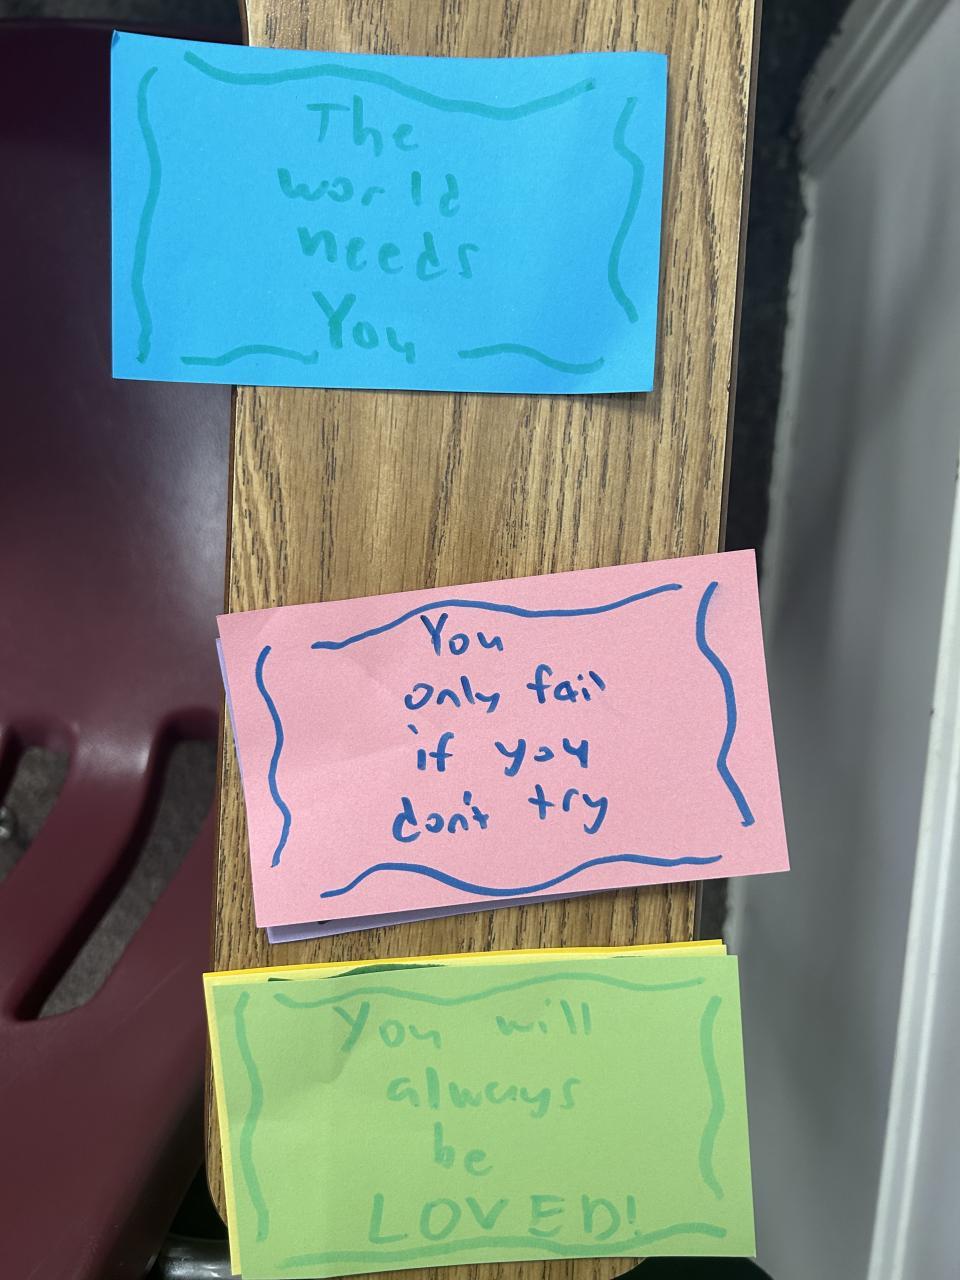 The
world
needs
You
You
only fail
if you
don't try
You will
always
be
LOVED!